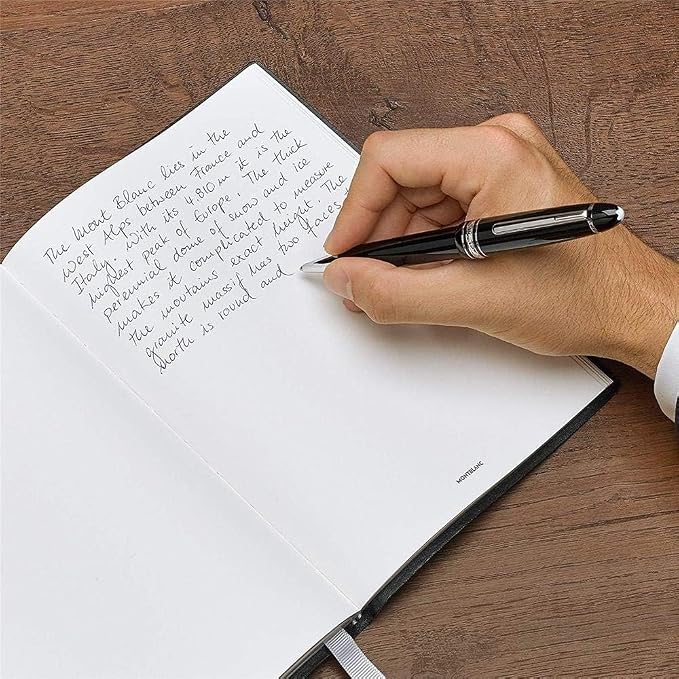 The Mont Blanc lies in the
West Alps between France and
Italy. With its 4.810 m it is the
highest peak of Europe. The thick
perennial dome of snow and ice
makes it complicated to measure
the moutains exact height. The
granite massif has two faces:
North is round and
MONTBLANC